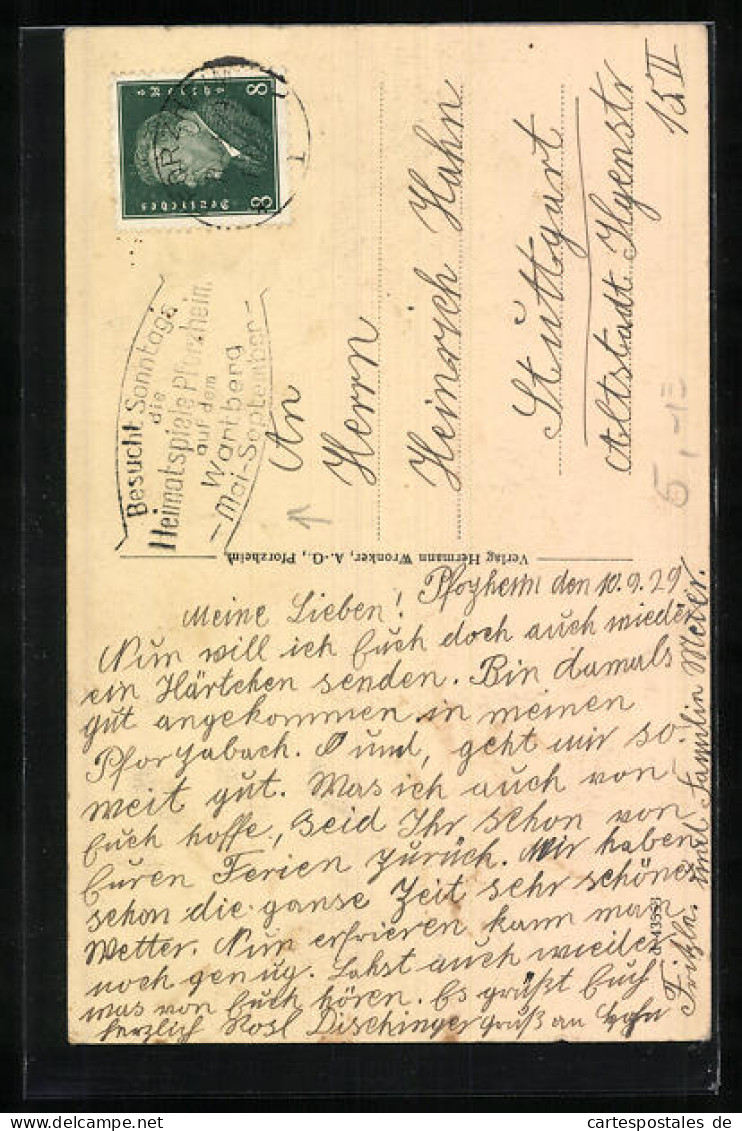 8 8
Deutsches
Besucht Sonntags
die
Heimatspiele Pforzheim
auf dem
Wartberg
– Mai-September –
An
Herrn
Heinrich Hahn
Stuttgart
Altstadt Ilgenstr
15 II
5,-
Verlag Hermann Wronker, A.-G., Pforzheim
Pforzheim den 10.9.29
Meine Lieben!
Nun will ich Euch doch auch wieder
ein Kärtchen senden. Bin damals
gut angekommen in meinen
Pforzabach. und, geht mir so
weit gut. Was ich auch von
Euch hoffe, Seid Ihr schon von
Euren Ferien zurück. Wir haben
schon die ganse Zeit sehr schönes
Wetter. Nun erfrieren kann man
noch genug. Lahst auch wieder
was von Euch hören. Es grüßt Euch
herzlich Rosl Dischinger gruß an
und Familin Meier.
43553
cartespostales de